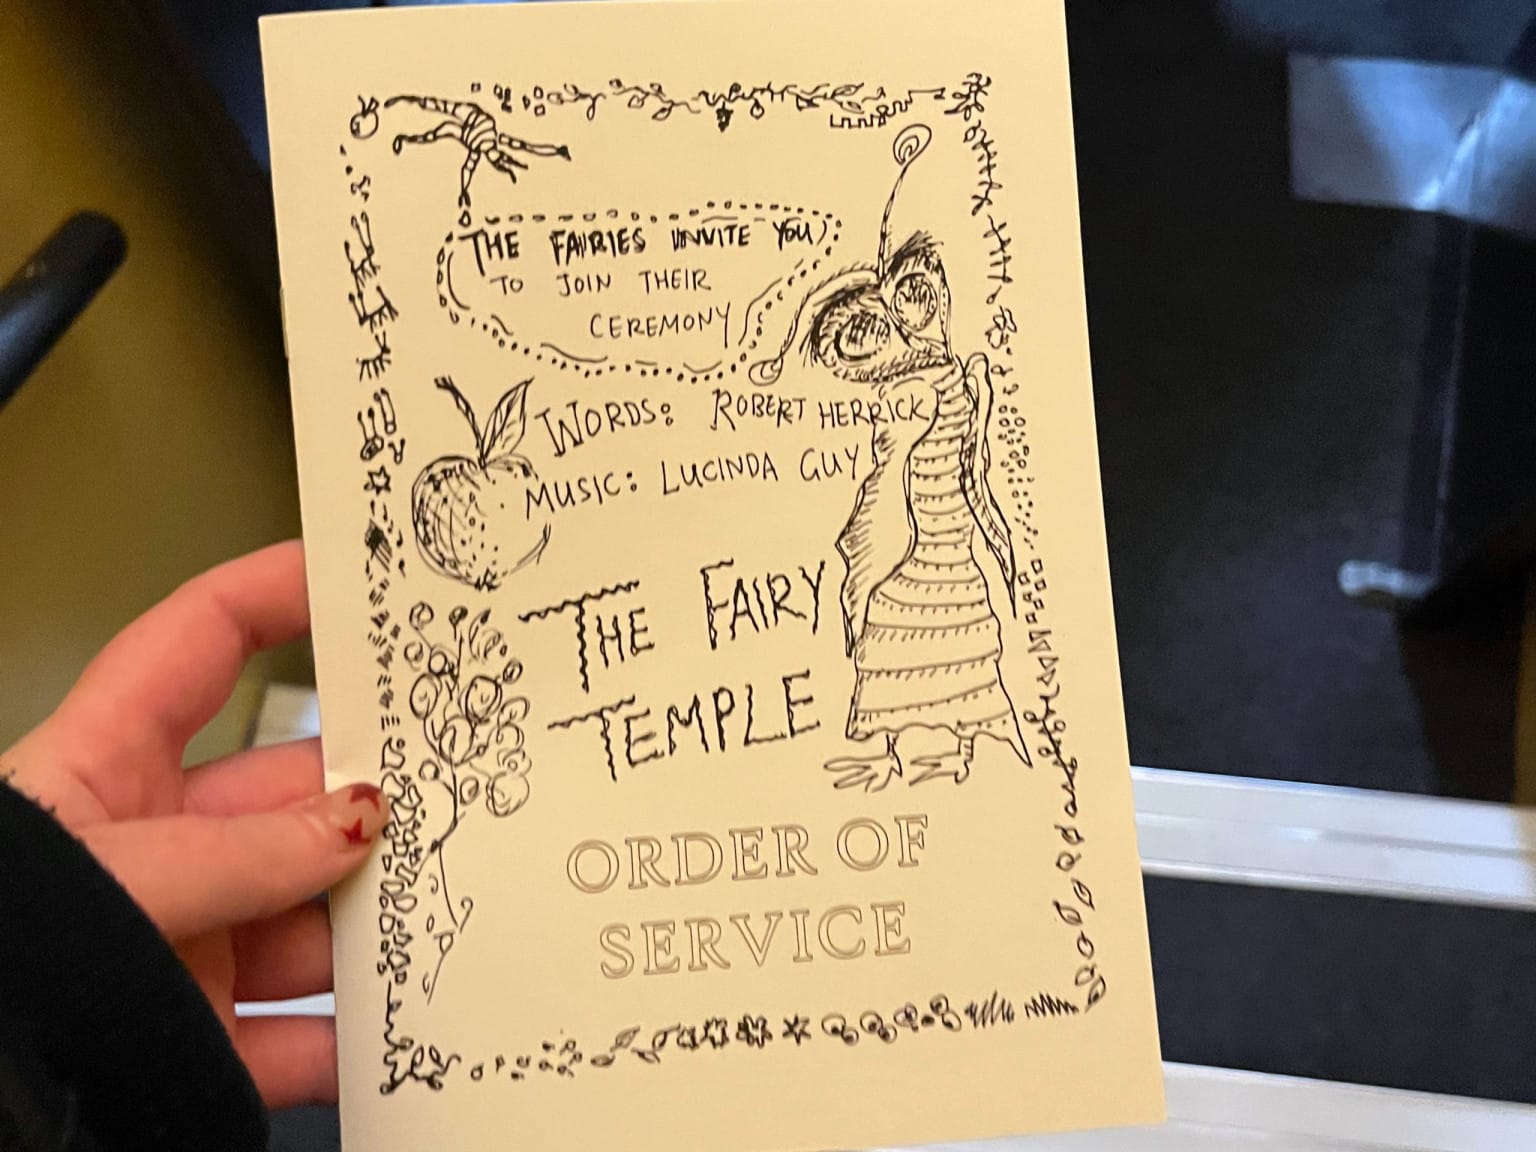 THE FAIRIES INVITE YOU
TO JOIN THEIR
CEREMONY
WORDS: ROBERT HERRICK
MUSIC: LUCINDA GUY
THE FAIRY
TEMPLE
ORDER OF
SERVICE